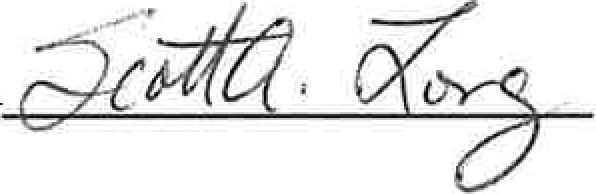 Scott A. Long